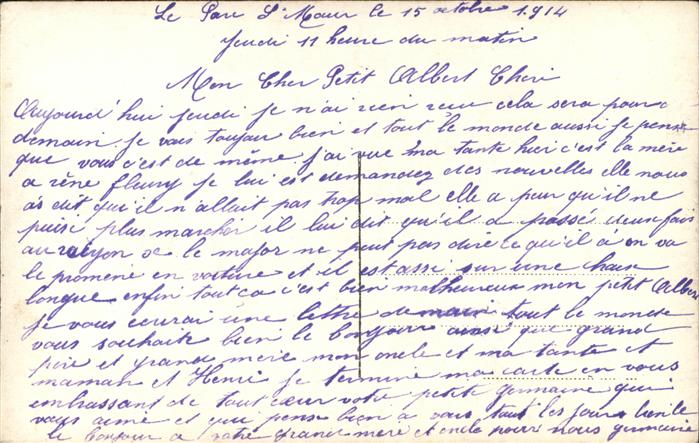 Le Parc St Maur le 15 octobre 1914
Jeudi 11 heure du matin
Mon Cher Petit Albert Cheri
Aujourd'hui jeudi je n'ai rien reçu cela sera pour
demain je vais toujour bien et tout le monde aussi je pense
que vous c'est de même j'ai vue ma tante hier c'est la mère
a réne fleury je lui est demandez des nouvelles elle nous
as dit qu'il n'allait pas trop mal elle a peur qu'il ne
puise plus marcher il lui dit qu'il a passé deux fois
au rayon x le major ne peut pas dire le qu'il à on va
le promené en voiture et il est assi sur une chaise
longue enfin tout ca c'est bien malheureux mon petit Albert
je vous ecrirai une lettre demain tout le monde
vous souhaite bien le bonjour ainsi que grand
père et grand mère mon oncle et ma tante et
maman et Henri je termine ma carte en vous
embrassant de tout cœur votre petite Germaine qui
vous aime et qui pense bien à vous tout les jours bien le
le bonjour a votre grand mère et oncle pour nous Germaine